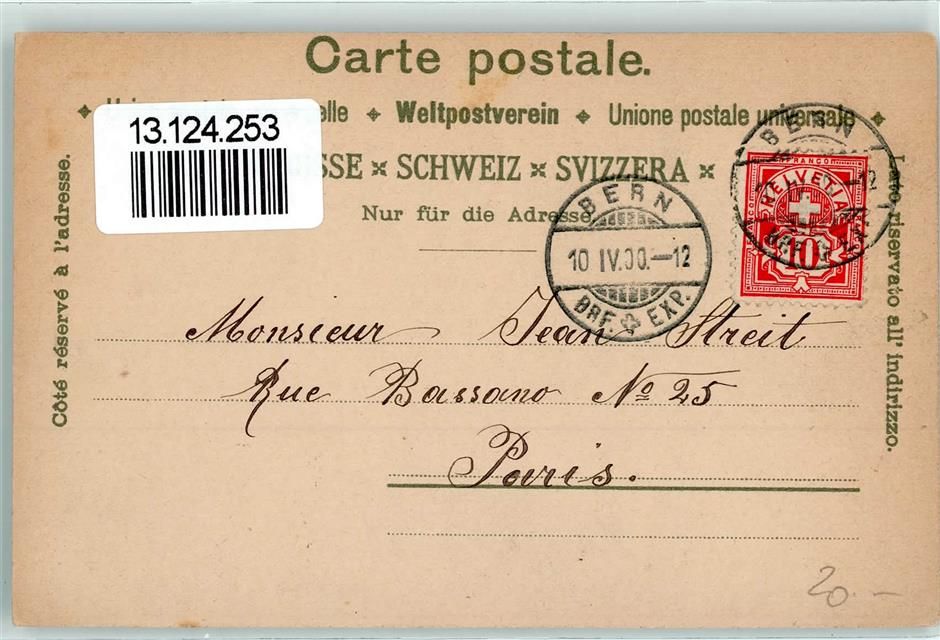 Carte postale.
13.124.253
Weltpostverein Unione postale universale
SCHWEIZ SVIZZERA
Nur für die Adresse
Côté réservé à l'adresse.
Lato riservato all' indirizzo.
BERN
10 IV.00.–12
BRF. EXP.
BERN
FRANCO
HELVETIA
10
Monsieur Jean Streit
Rue Bassano No 25
Paris.
20.–